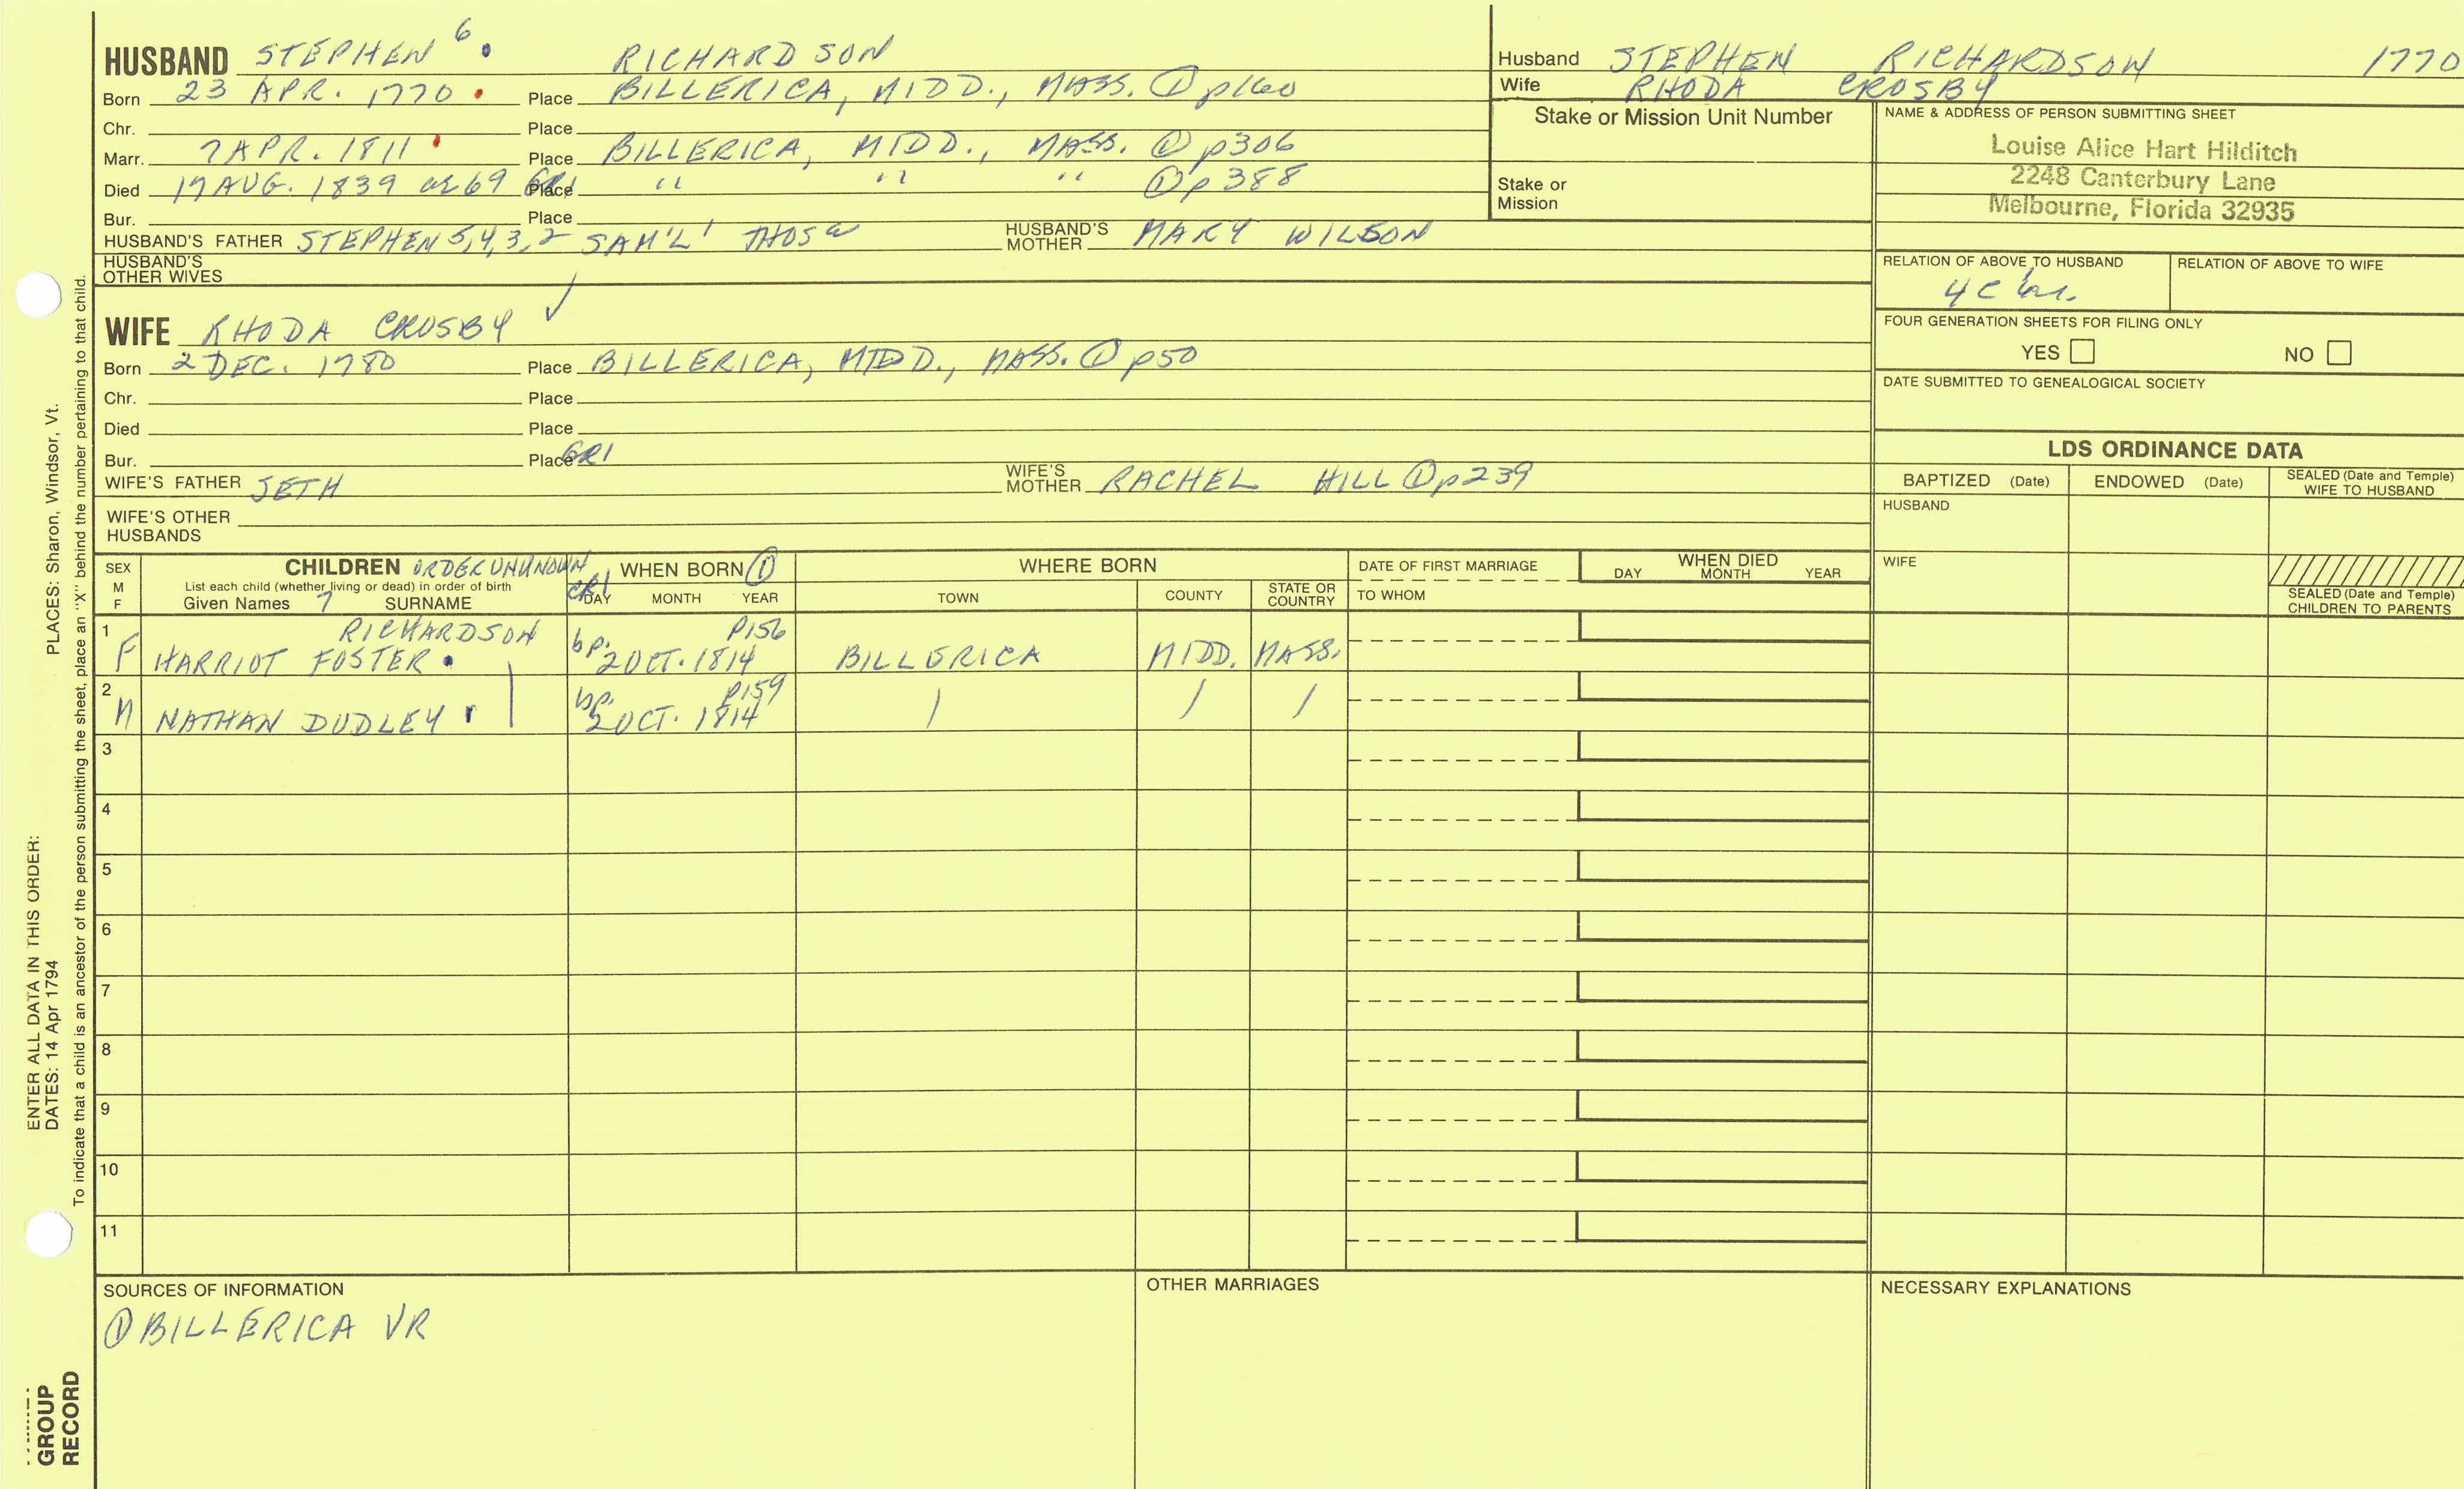 HUSBAND STEPHEN 6. RICHARDSON
Born 23 APR. 1770 Place BILLERICA, MIDD., MASS. ① p160
Chr. Place
Marr. 7 APR. 1811 Place BILLERICA, MIDD., MASS. ① p306
Died 17 AUG. 1839 ae 69 GR1 Place " " " ① p388
Bur. Place
HUSBAND'S FATHER STEPHEN 5,4,3,2 SAM'L 1 THOS HUSBAND'S MOTHER MARY WILSON
HUSBAND'S OTHER WIVES
WIFE RHODA CROSBY ✓
Born 2 DEC. 1780 Place BILLERICA, MIDD., MASS. ① p50
Chr. Place
Died Place
Bur. Place GR1
WIFE'S FATHER SETH WIFE'S MOTHER RACHEL HILL ① p239
WIFE'S OTHER HUSBANDS
Husband STEPHEN RICHARDSON 1770
Wife RHODA CROSBY
Stake or Mission Unit Number
Stake or Mission
NAME & ADDRESS OF PERSON SUBMITTING SHEET
Louise Alice Hart Hilditch
2248 Canterbury Lane
Melbourne, Florida 32935
RELATION OF ABOVE TO HUSBAND RELATION OF ABOVE TO WIFE
4 C
FOUR GENERATION SHEETS FOR FILING ONLY
YES NO
DATE SUBMITTED TO GENEALOGICAL SOCIETY
LDS ORDINANCE DATA
BAPTIZED (Date) ENDOWED (Date) SEALED (Date and Temple) WIFE TO HUSBAND
HUSBAND
WIFE
SEALED (Date and Temple) CHILDREN TO PARENTS
SEX M F
CHILDREN ORDER UNKNOWN
List each child (whether living or dead) in order of birth
Given Names 7 SURNAME
WHEN BORN ①
CR1 DAY MONTH YEAR
WHERE BORN
TOWN COUNTY STATE OR COUNTRY
DATE OF FIRST MARRIAGE
TO WHOM
WHEN DIED
DAY MONTH YEAR
1 RICHARDSON bp. P156
F HARRIOT FOSTER 2 OCT. 1814 BILLERICA MIDD. MASS.
2 bp. P159
M NATHAN DUDLEY 2 OCT. 1814
3
4
5
6
7
8
9
10
11
SOURCES OF INFORMATION
① BILLERICA VR
OTHER MARRIAGES
NECESSARY EXPLANATIONS
ENTER ALL DATA IN THIS ORDER:
DATES: 14 Apr 1794 PLACES: Sharon, Windsor, Vt.
To indicate that a child is an ancestor of the person submitting the sheet, place an "X" behind the number pertaining to that child.
GROUP
RECORD